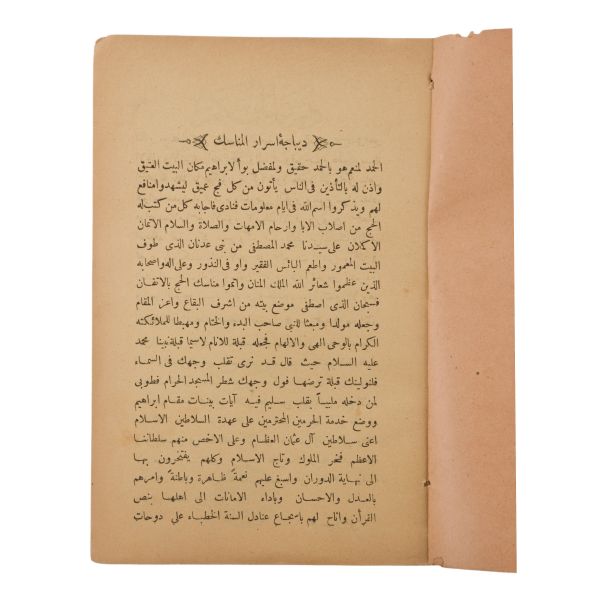 ديباجۀ اسرار المناسك
الحمد لمنعم هو بالحمد حقيق ولمفضل بوأ لابراهيم مكان البيت العتيق
واذن له بالتأذين فى الناس يأتون من كل فج عميق ليشهدوا منافع
لهم ويذكروا اسم الله فى ايام معلومات فنادى فاجابه كل من كتب له
الحج من اصلاب الابا وارحام الامهات والصلاة والسلام الاتمان
الاكلان على سيدنا محمد المصطفى من بنى عدنان الذى طوف
البيت المعمور واطعم البائس الفقير واو فى النذور وعلى اله واصحابه
الذين عظموا شعائر الله الملك المنان واتموا مناسك الحج بالاتقان
فسبحان الذى اصطفى موضع بيته من اشرف البقاع واعز المقام
وجعله مولدا ومبعثا للنبى صاحب البدء والختام ومهبطا للملائكته
الكرام بالوحى الهى والالهام فجعله قبلة للانام لاسيما قبلة نبينا محمد
عليه السلام حيث قال قد نرى تقلب وجهك فى السماء
فلنولينك قبلة ترضها فول وجهك شطر المسجد الحرام فطوبى
لمن دخله ملبياً بقلب سليم فيه آيات بينات مقام ابراهيم
ووضع خدمة الحرمين المحترمين على عهدة السلاطين الاسلام
اعنى سلاطين آل عثمان العظام وعلى الاخص منهم سلطاننا
الاعظم فخر الملوك وتاج الاسلام وكلهم يفتخرون بها
الى نهاية الدوران واسبغ عليهم نعمةً ظاهرة وباطنةً وامرهم
بالعدل والاحسان وباداء الامانات الى اهلها بنص
القرأن واتاح لهم باسجاع عنادل السنة الخطباء على دوحات